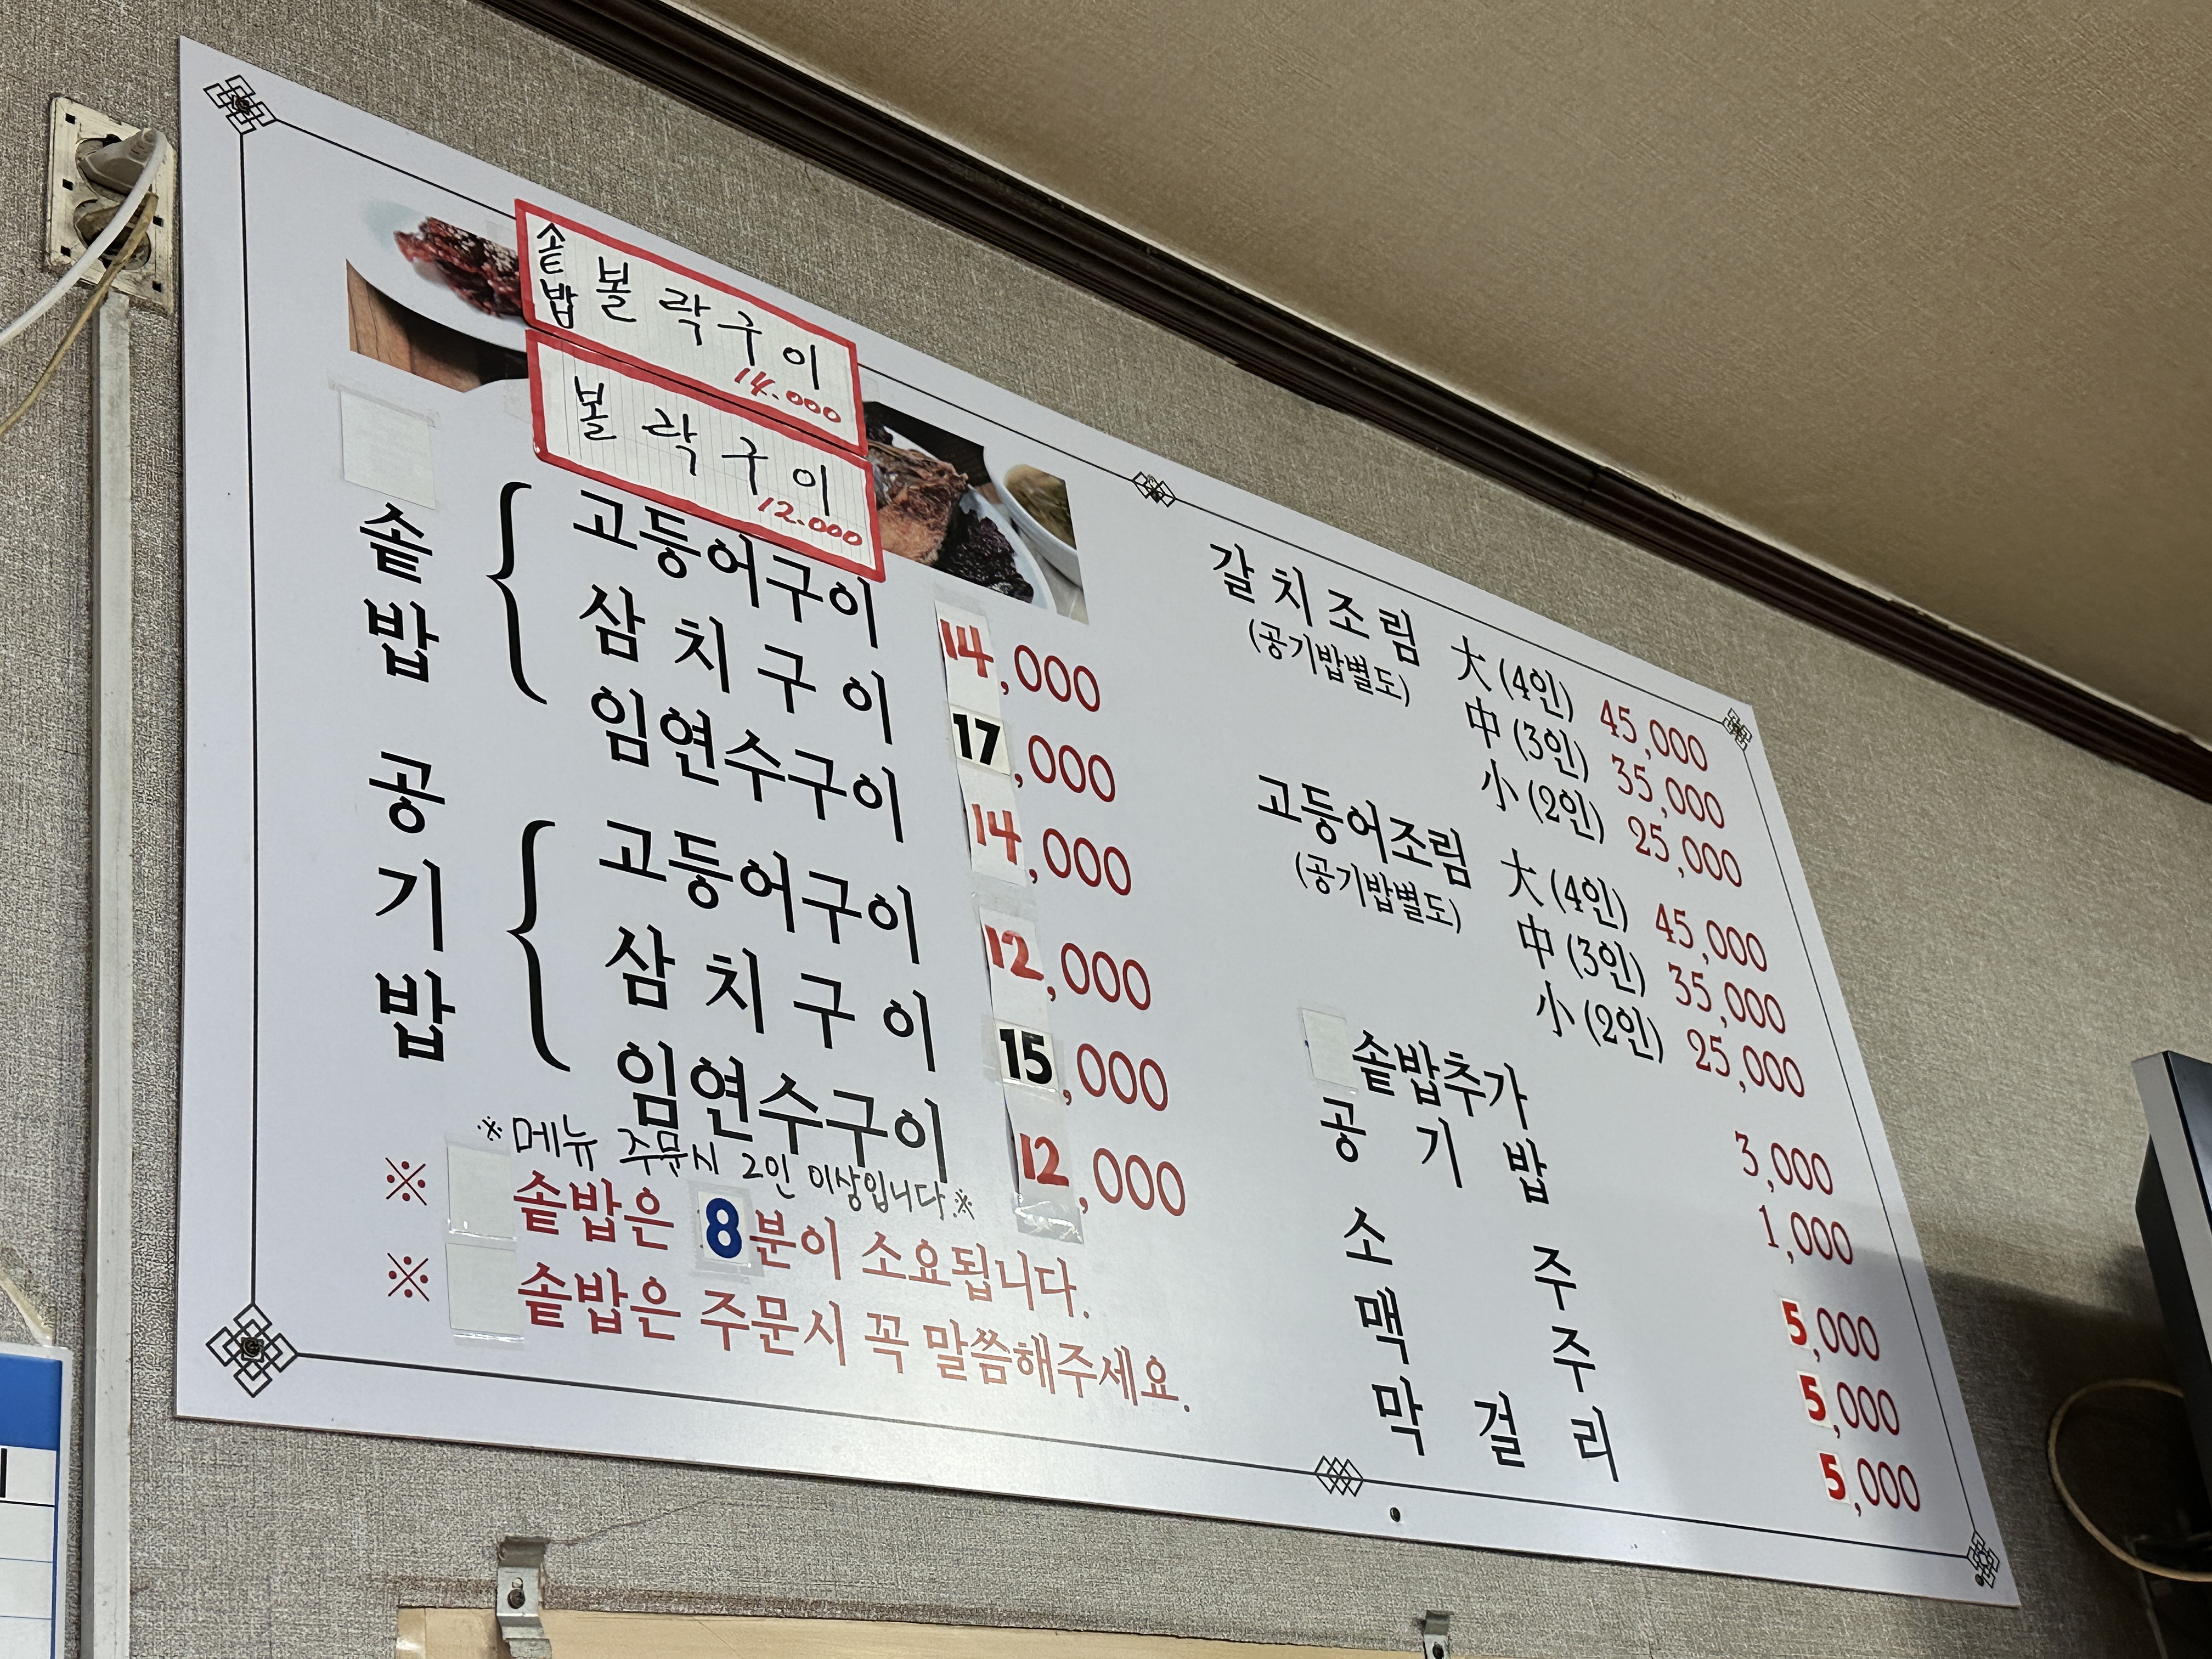 솥밥 볼락구이 14.000
볼락구이 12.000
솥밥
고등어구이 14,000
삼치구이 17,000
임연수구이 14,000
공기밥
고등어구이 12,000
삼치구이 15,000
임연수구이 12,000
※메뉴 주문시 2인 이상입니다.※
※ 솥밥은 8분이 소요됩니다.
※ 솥밥은 주문시 꼭 말씀해주세요.
갈치조림 大(4인) 45,000
(공기밥별도) 中(3인) 35,000
小(2인) 25,000
고등어조림 大(4인) 45,000
(공기밥별도) 中(3인) 35,000
小(2인) 25,000
솥밥추가 3,000
공기밥 1,000
소주 5,000
맥주 5,000
막걸리 5,000